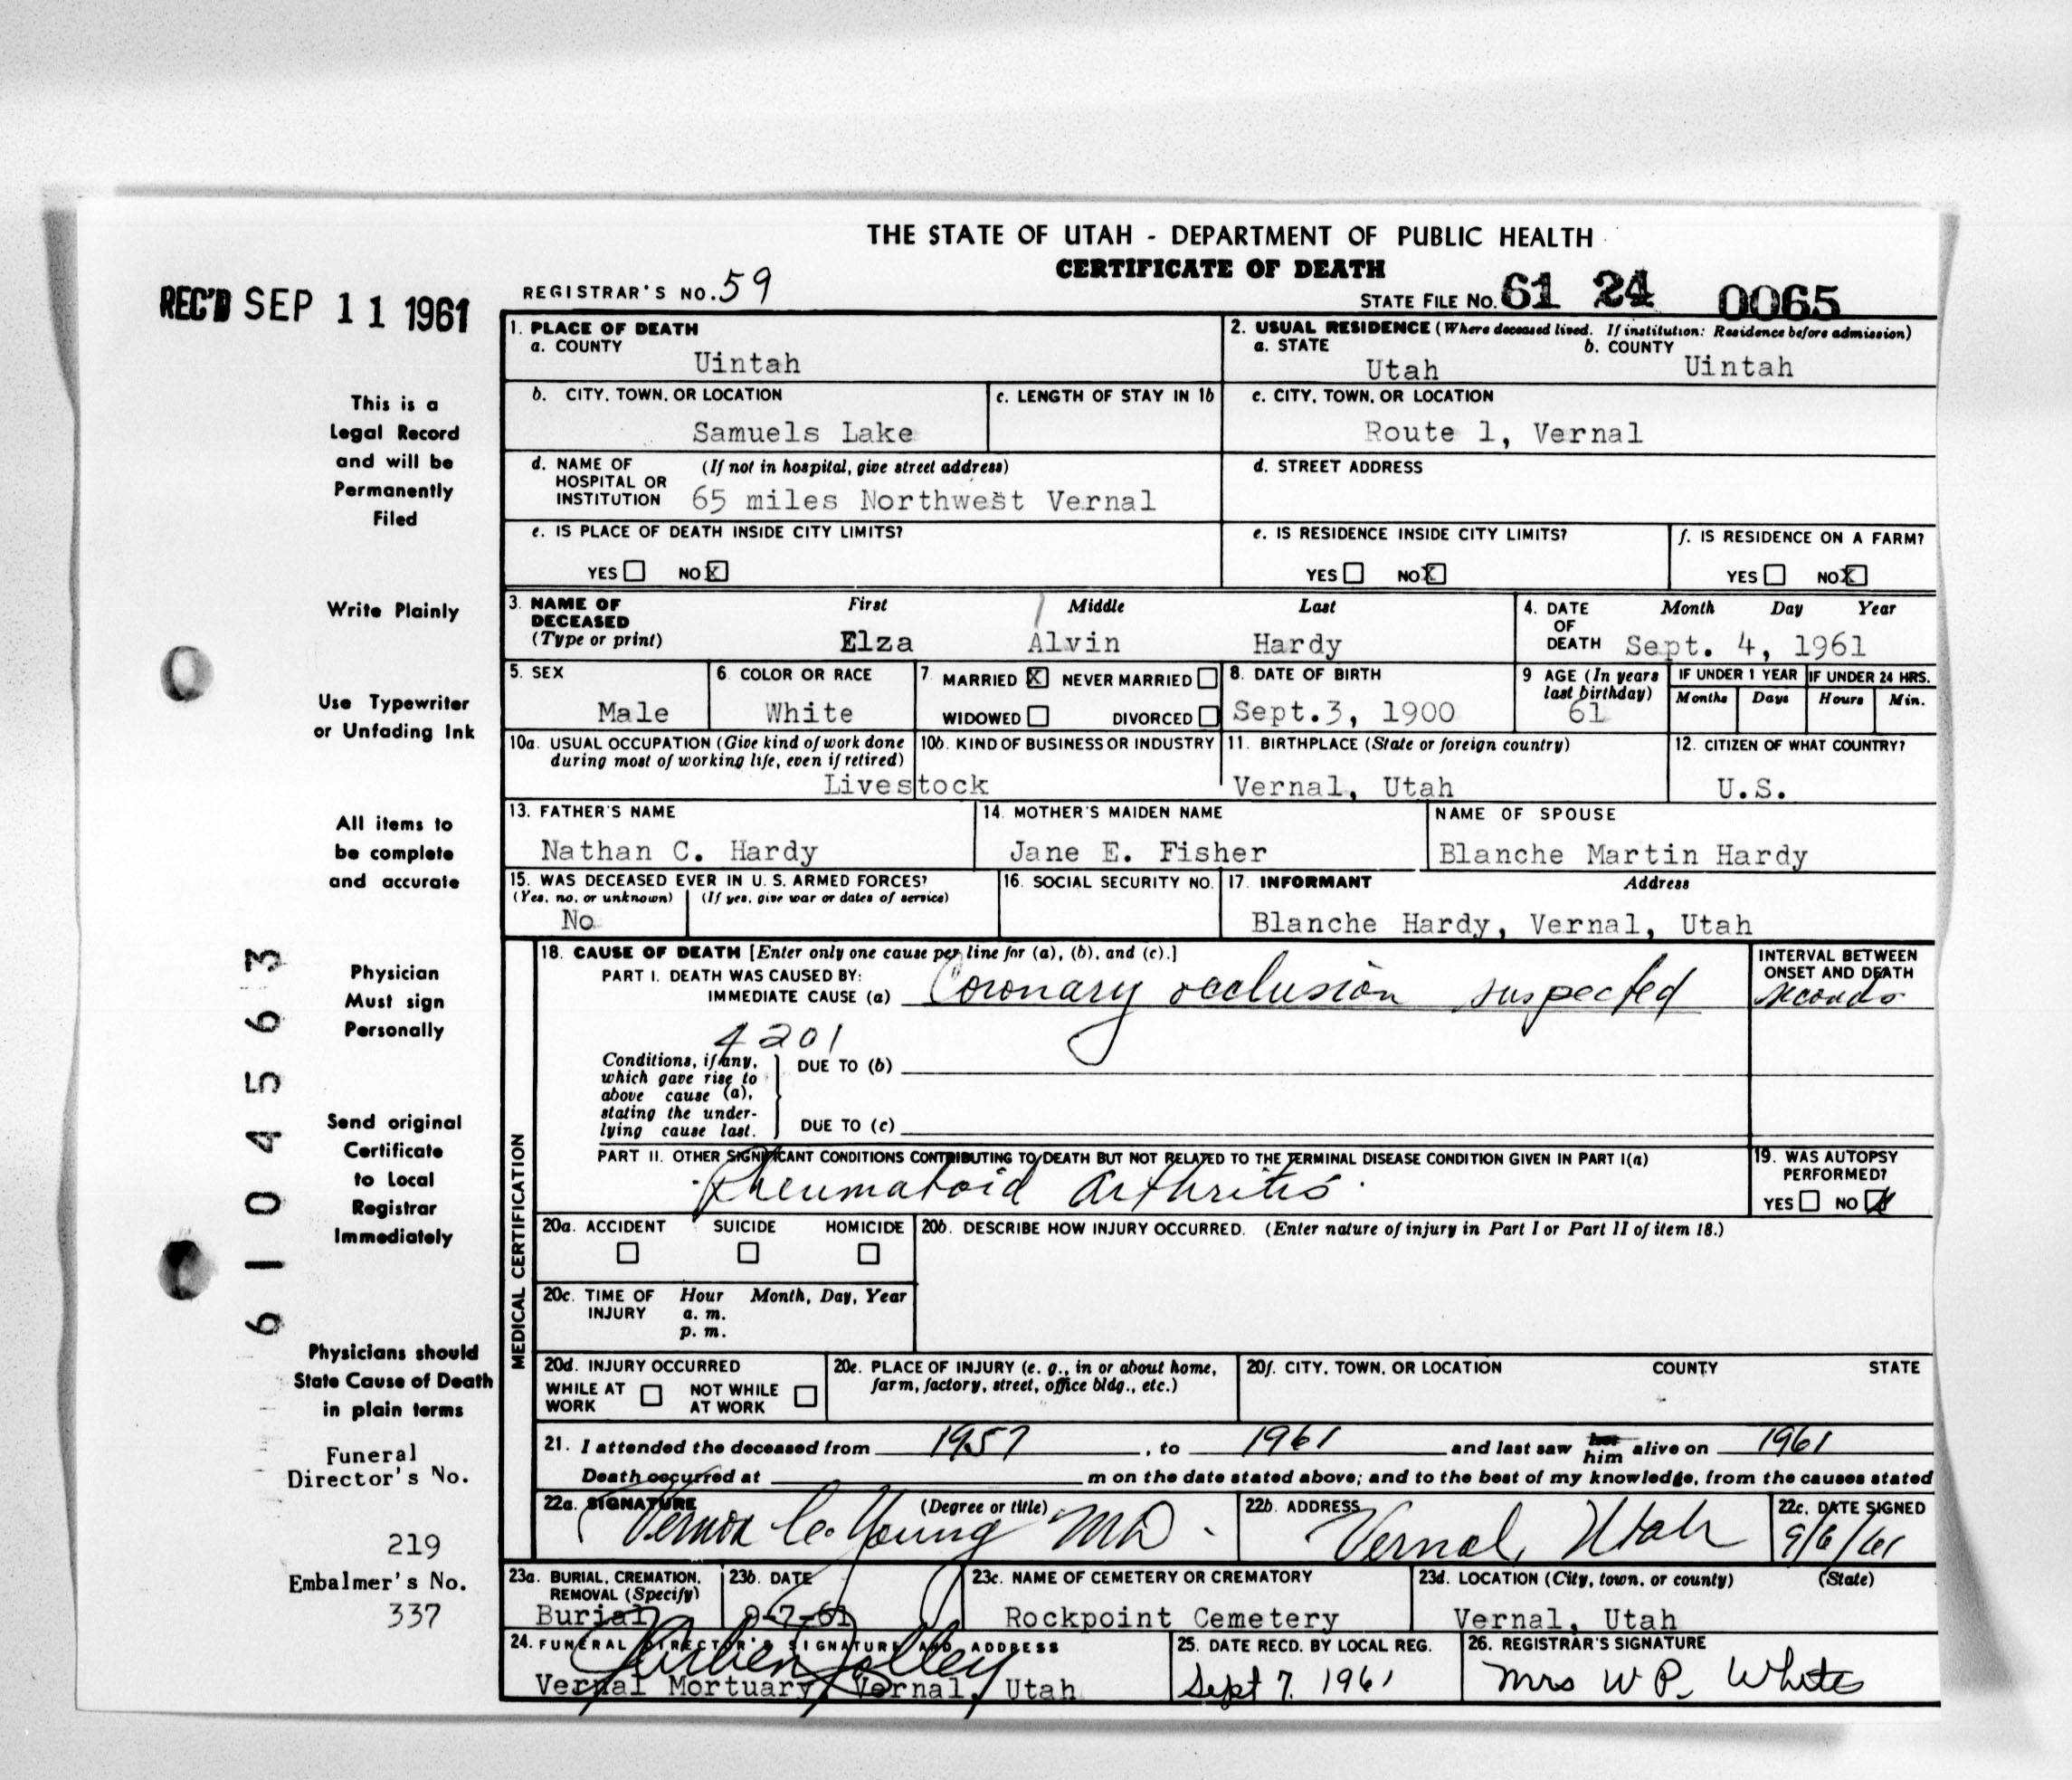 THE STATE OF UTAH - DEPARTMENT OF PUBLIC HEALTH
CERTIFICATE OF DEATH
REC'D SEP 11 1961
REGISTRAR'S NO. 59
STATE FILE NO. 61 24 0065
1. PLACE OF DEATH
a. COUNTY
Uintah
2. USUAL RESIDENCE (Where deceased lived. If institution: Residence before admission)
a. STATE
Utah
b. COUNTY
Uintah
b. CITY, TOWN, OR LOCATION
Samuels Lake
c. LENGTH OF STAY IN 1b
c. CITY, TOWN, OR LOCATION
Route 1, Vernal
d. NAME OF HOSPITAL OR INSTITUTION
(If not in hospital, give street address)
65 miles Northwest Vernal
d. STREET ADDRESS
e. IS PLACE OF DEATH INSIDE CITY LIMITS?
YES NO X
e. IS RESIDENCE INSIDE CITY LIMITS?
YES NO X
f. IS RESIDENCE ON A FARM?
YES NO X
3. NAME OF DECEASED
(Type or print)
First Middle Last
Elza Alvin Hardy
4. DATE OF DEATH
Month Day Year
Sept. 4, 1961
5. SEX
Male
6. COLOR OR RACE
White
7. MARRIED X NEVER MARRIED
WIDOWED DIVORCED
8. DATE OF BIRTH
Sept.3, 1900
9 AGE (In years last birthday)
61
IF UNDER 1 YEAR
Months Days
IF UNDER 24 HRS.
Hours Min.
10a. USUAL OCCUPATION (Give kind of work done during most of working life, even if retired)
10b. KIND OF BUSINESS OR INDUSTRY
Livestock
11. BIRTHPLACE (State or foreign country)
Vernal, Utah
12. CITIZEN OF WHAT COUNTRY?
U.S.
13. FATHER'S NAME
Nathan C. Hardy
14. MOTHER'S MAIDEN NAME
Jane E. Fisher
NAME OF SPOUSE
Blanche Martin Hardy
15. WAS DECEASED EVER IN U. S. ARMED FORCES?
(Yes, no, or unknown) (If yes, give war or dates of service)
No
16. SOCIAL SECURITY NO.
17. INFORMANT Address
Blanche Hardy, Vernal, Utah
MEDICAL CERTIFICATION
18. CAUSE OF DEATH [Enter only one cause per line for (a), (b), and (c).]
PART I. DEATH WAS CAUSED BY:
IMMEDIATE CAUSE (a) Coronary occlusion suspected
INTERVAL BETWEEN ONSET AND DEATH
seconds
4201
Conditions, if any, which gave rise to above cause (a), stating the underlying cause last.
DUE TO (b)
DUE TO (c)
PART II. OTHER SIGNIFICANT CONDITIONS CONTRIBUTING TO DEATH BUT NOT RELATED TO THE TERMINAL DISEASE CONDITION GIVEN IN PART I(a)
Rheumatoid arthritis
19. WAS AUTOPSY PERFORMED?
YES NO X
20a. ACCIDENT SUICIDE HOMICIDE
20b. DESCRIBE HOW INJURY OCCURRED. (Enter nature of injury in Part I or Part II of item 18.)
20c. TIME OF INJURY
Hour Month, Day, Year
a. m.
p. m.
20d. INJURY OCCURRED
WHILE AT WORK NOT WHILE AT WORK
20e. PLACE OF INJURY (e. g., in or about home, farm, factory, street, office bldg., etc.)
20f. CITY, TOWN, OR LOCATION COUNTY STATE
21. I attended the deceased from 1957, to 1961 and last saw him alive on 1961
Death occurred at m on the date stated above; and to the best of my knowledge, from the causes stated
22a. SIGNATURE (Degree or title)
Vernon C. Young MD
22b. ADDRESS
Vernal, Utah
22c. DATE SIGNED
9/6/61
23a. BURIAL, CREMATION, REMOVAL (Specify)
Burial
23b. DATE
9-7-61
23c. NAME OF CEMETERY OR CREMATORY
Rockpoint Cemetery
23d. LOCATION (City, town, or county) (State)
Vernal, Utah
24. FUNERAL DIRECTOR'S SIGNATURE AND ADDRESS
Vernal Mortuary, Vernal, Utah
25. DATE RECD. BY LOCAL REG.
Sept 7, 1961
26. REGISTRAR'S SIGNATURE
Mrs W P. White
This is a
Legal Record
and will be
Permanently
Filed
Write Plainly
Use Typewriter
or Unfading Ink
All items to
be complete
and accurate
Physician
Must sign
Personally
Send original
Certificate
to Local
Registrar
Immediately
Physicians should
State Cause of Death
in plain terms
Funeral
Director's No.
219
Embalmer's No.
337
61045563